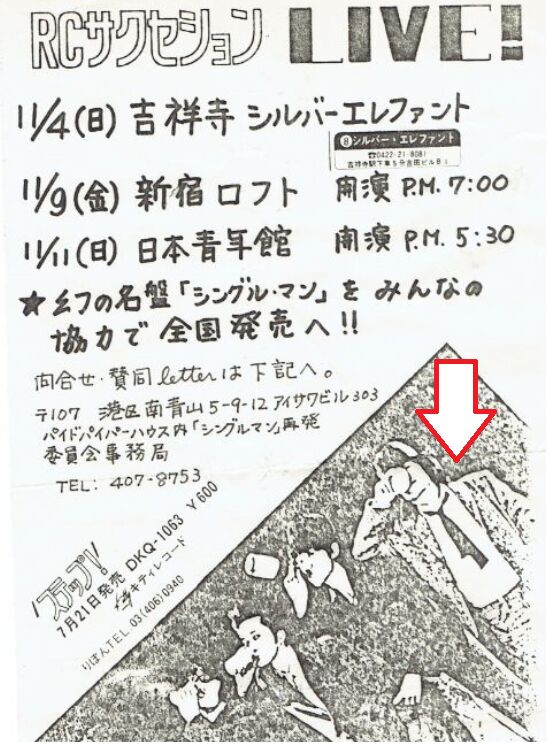 RCサクセション LIVE!
11/4(日) 吉祥寺 シルバーエレファント
⑧シルバー・エレファント
☎0422-21-8081
吉祥寺駅下車5分吉田ビルB1
11/9(金) 新宿ロフト 開演 P.M. 7:00
11/11(日) 日本青年館 開演 P.M. 5:30
★幻の名盤「シングル・マン」を みんなの
協力で 全国発売へ!!
問合せ・賛同letterは下記へ。
〒107 港区南青山5-9-12 アイサワビル303
パイドパイパーハウス内「シングルマン」再発
委員会事務局
TEL: 407-8753
ステップ!
7月21日発売 DKQ-1063 ¥600
キティレコード
りぼんTEL.03(406)0940